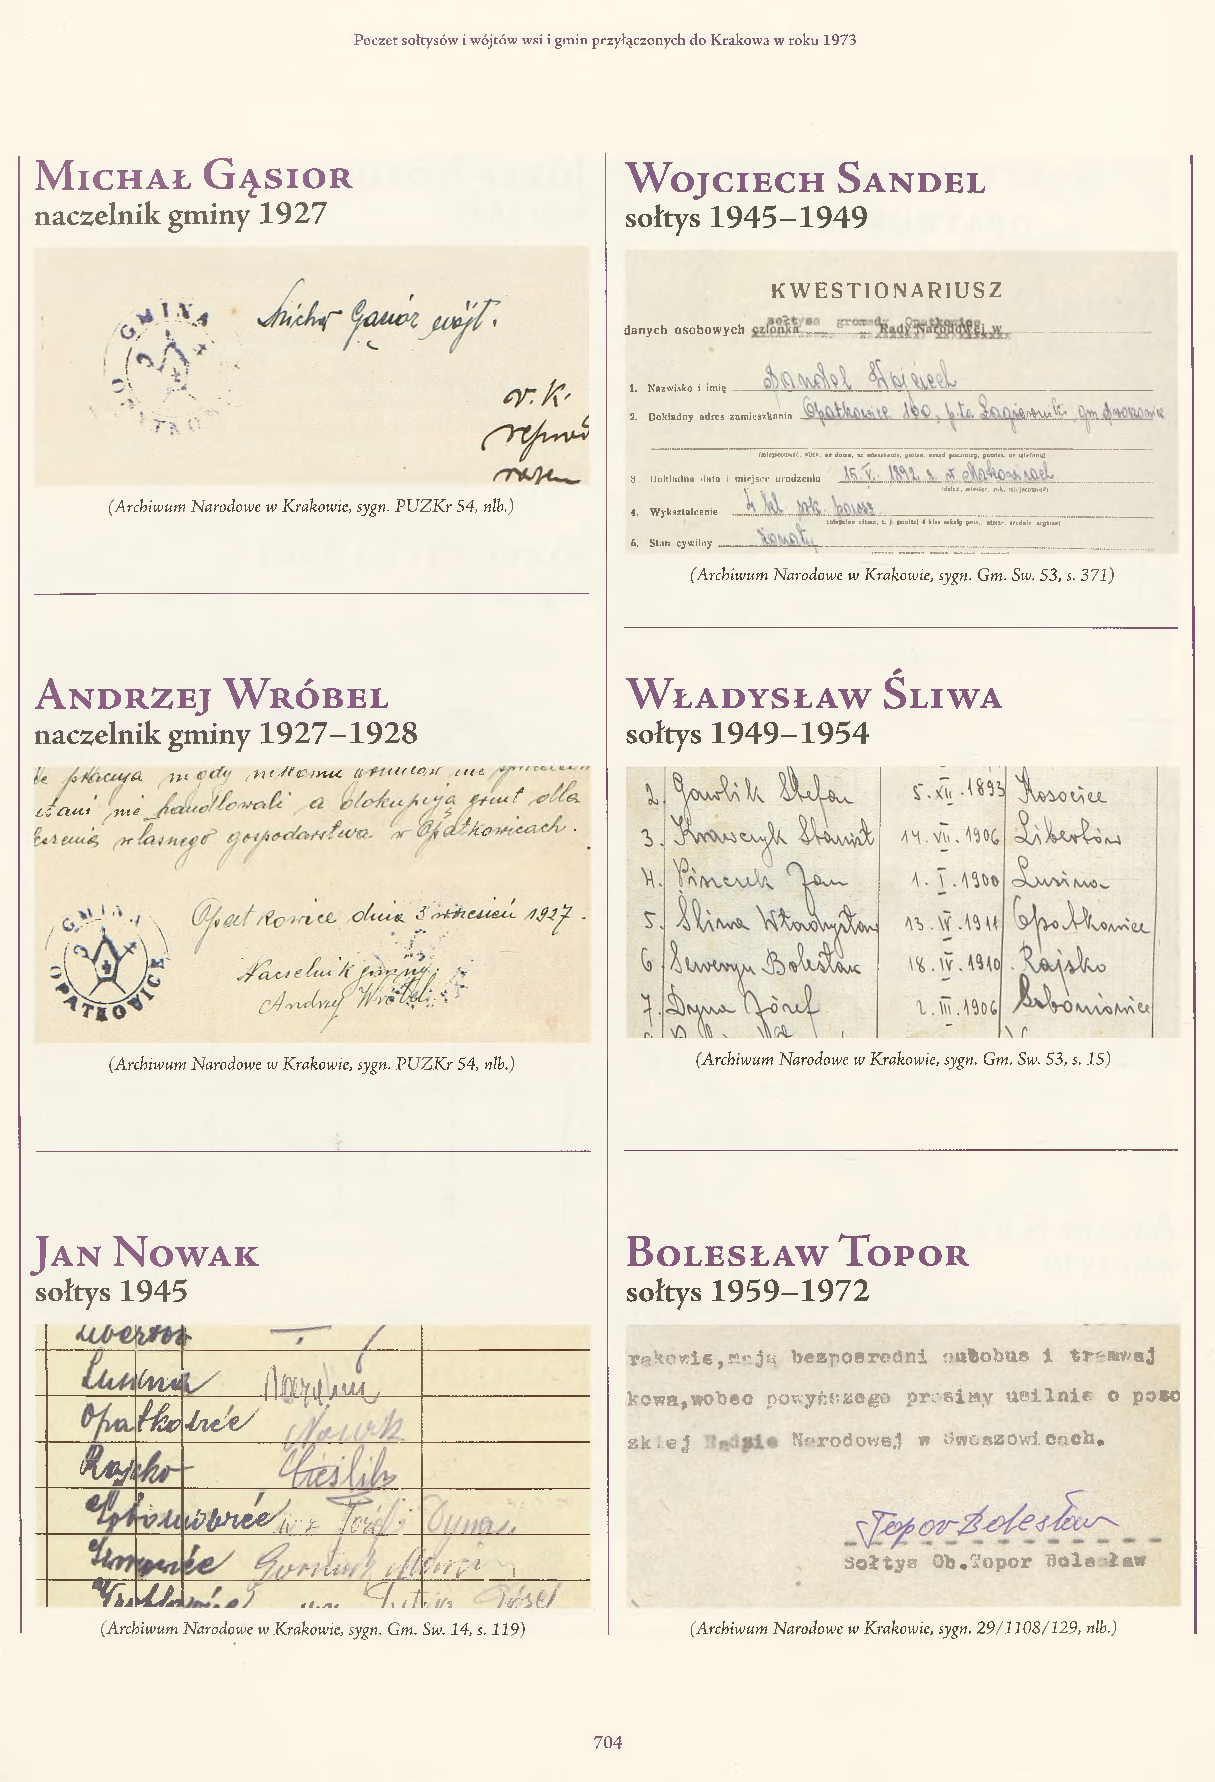 Poczet sołtysów i wójtów wsi i gmin przyłączonych do Krakowa w roku 1973
Michał Gąsior
naczelnik gminy 1927
GMINA
OPATKO
Michał Gąsiór wójt.
(Archiwum Narodowe w Krakowie, sygn. PUZKr 54, nlb.)
Andrzej Wróbel
naczelnik gminy 1927–1928
nie handlowali a dokupują grunt dla
własnego gospodarstwa w Opatkowicach.
Opatkowice dnia 3 wrzesień 1927.
GMINA
OPATKOWICE
Naczelnik gminy
Andrzej Wróbel
(Archiwum Narodowe w Krakowie, sygn. PUZKr 54, nlb.)
Jan Nowak
sołtys 1945
Lusina
Opatkowice Nowak
Rajsko Cieślik
Józef Dyna
(Archiwum Narodowe w Krakowie, sygn. Gm. Sw. 14, s. 119)
Wojciech Sandel
sołtys 1945–1949
KWESTIONARIUSZ
sołtysa gromady Opatkowice
danych osobowych członka Rady Narodowej w
1. Nazwisko i imię Sandel Wojciech
2. Dokładny adres zamieszkania Opatkowice 160, p-ta Łagiewniki, gm.
3. Dokładna data i miejsce urodzenia 15.V. 1892 r. w
4. Wykształcenie 4 kl. szk. powsz.
5. Stan cywilny żonaty
(Archiwum Narodowe w Krakowie, sygn. Gm. Sw. 53, s. 371)
Władysław Śliwa
sołtys 1949–1954
2. Gawlik Stefan 5.XII.1893 Kosocice
3. Krawczyk Stanisł 14.VII.1906 Libertów
4. Jan 1.I.1900 Lusina
5. Śliwa Władysław 13.IV.1911 Opatkowice
6 Seweryn Bolesław 18.IV.1910 Rajsko
7. Dyna Józef 2.III.1906 Soboniowice
(Archiwum Narodowe w Krakowie, sygn. Gm. Sw. 53, s. 15)
Bolesław Topor
sołtys 1959–1972
rakowie,mają bezpośredni autobus i tramwaj
kowa,wobec powyższego prosimy usilnie o poso
zkiej Radzie Narodowej w Swoszowicach.
Topor Bolesław
Sołtys Ob.Topor Bolesław
(Archiwum Narodowe w Krakowie, sygn. 29/1108/129, nlb.)
704